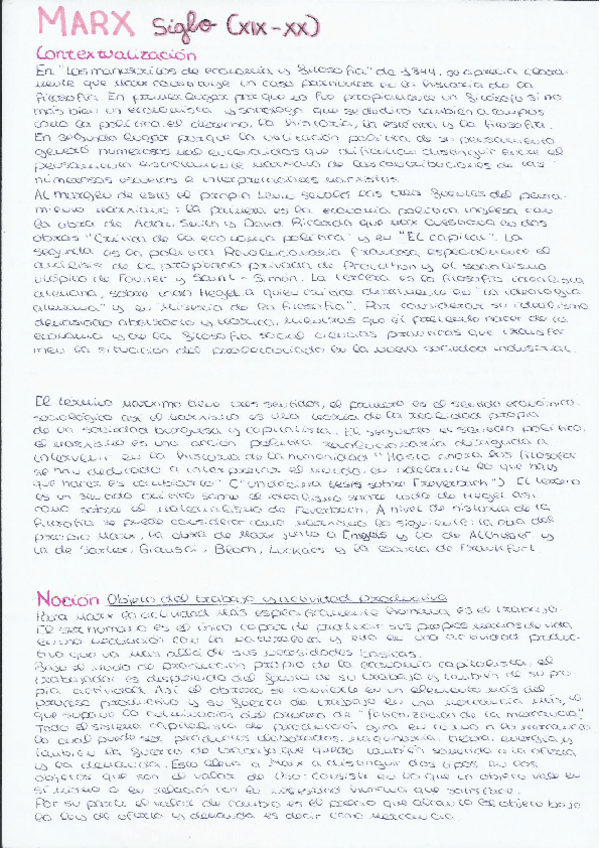 MARX Siglo (XIX-XX)
Contextualización
En "Los manuscritos de economía y filosofía" de 1844, se aprecia clara-
mente que Marx constituye un caso particular en la historia de la
filosofía. En primer lugar porque no fue propiamente un filósofo si no
más bien un economista y sociólogo que se dedicó también a campos
como la política, el derecho, la historia, la estética y la filosofía.
En segundo lugar porque la utilización política de su pensamiento
generó numerosos malentendidos que dificultan distinguir entre el
pensamiento estrictamente marxiano de las contribuciones de las
numerosas escuelas e interpretaciones marxistas.
Al margen de esto el propio Lenin señaló las tres fuentes del pensa-
miento marxiano: la primera es la economía política inglesa con
la obra de Adam Smith y David Ricardo que Marx cuestiona en dos
obras "Crítica de la economía política" y en "El capital". La
segunda es la política Revolucionaria Francesa especialmente el
análisis de la propiedad privada de Proudhon y el socialismo
utópico de Fourier y Saint-Simon. La tercera es la filosofía idealista
alemana, sobre todo Hegel a quien critica duramente en "la ideología
alemana" y en "Miseria de la filosofía". Por considerar su idealismo
demasiado abstracto y teórico, mientras que él pretende hacer de la
economía y de la filosofía social ciencias prácticas que transfor
men la situación del proletariado en la nueva sociedad industrial.
El término marxismo tiene tres sentidos, el primero es el sentido económico-
sociológico así el marxismo es una teoría de la realidad propia
de la sociedad burguesa y capitalista. El segundo el sentido político,
el marxismo es una acción política revolucionaria dirigida a
intervenir en la historia de la humanidad "Hasta ahora los filósofos
se han dedicado a interpretar el mundo, en adelante lo que hay
que hacer es cambiarlo" ("Undécima tesis sobre Feuerbach"). El tercero
es un sentido crítico sobre el idealismo sobre todo de Hegel así
como sobre el materialismo de Feuerbach. A nivel de historia de la
filosofía se puede considerar como marxismo lo siguiente: la obra del
propio Marx, la obra de Marx junto a Engels y la de Althusser y
la de Sartre, Gramsci, Bloch, Luckács y la escuela de Frankfurt
Noción Objeto del trabajo y actividad productiva
Para Marx la actividad más específicamente humana es el trabajo.
El ser humano es el único capaz de producir sus propios medios de vida
en una mediación con la naturaleza y esto es una actividad produc-
tiva que va más allá de sus necesidades básicas.
Bajo el modo de producción propio de la economía capitalista, el
trabajador es desposeído del fruto de su trabajo y también de su pro-
pia actividad. Así el obrero se convierte en un elemento más del
proceso productivo y su fuerza de trabajo en una mercancía más, lo
que supone la culminación del proceso de "fetichización de la mercancía"
Todo el sistema capitalista de producción gira en torno a la mercancía
la cual puede ser productos elaborados, maquinaria, tierra, energía y
también la fuerza de trabajo que queda también sometida a la oferta
y la demanda. Esto lleva a Marx a distinguir dos tipos en los
objetos que son el valor de Uso: consiste en lo que un objeto vale en
sí mismo o en relación con la necesidad humana que satisface.
Por su parte el valor de cambio es el precio que alcanza ese objeto bajo
la ley de oferta y demanda es decir como mercancía.